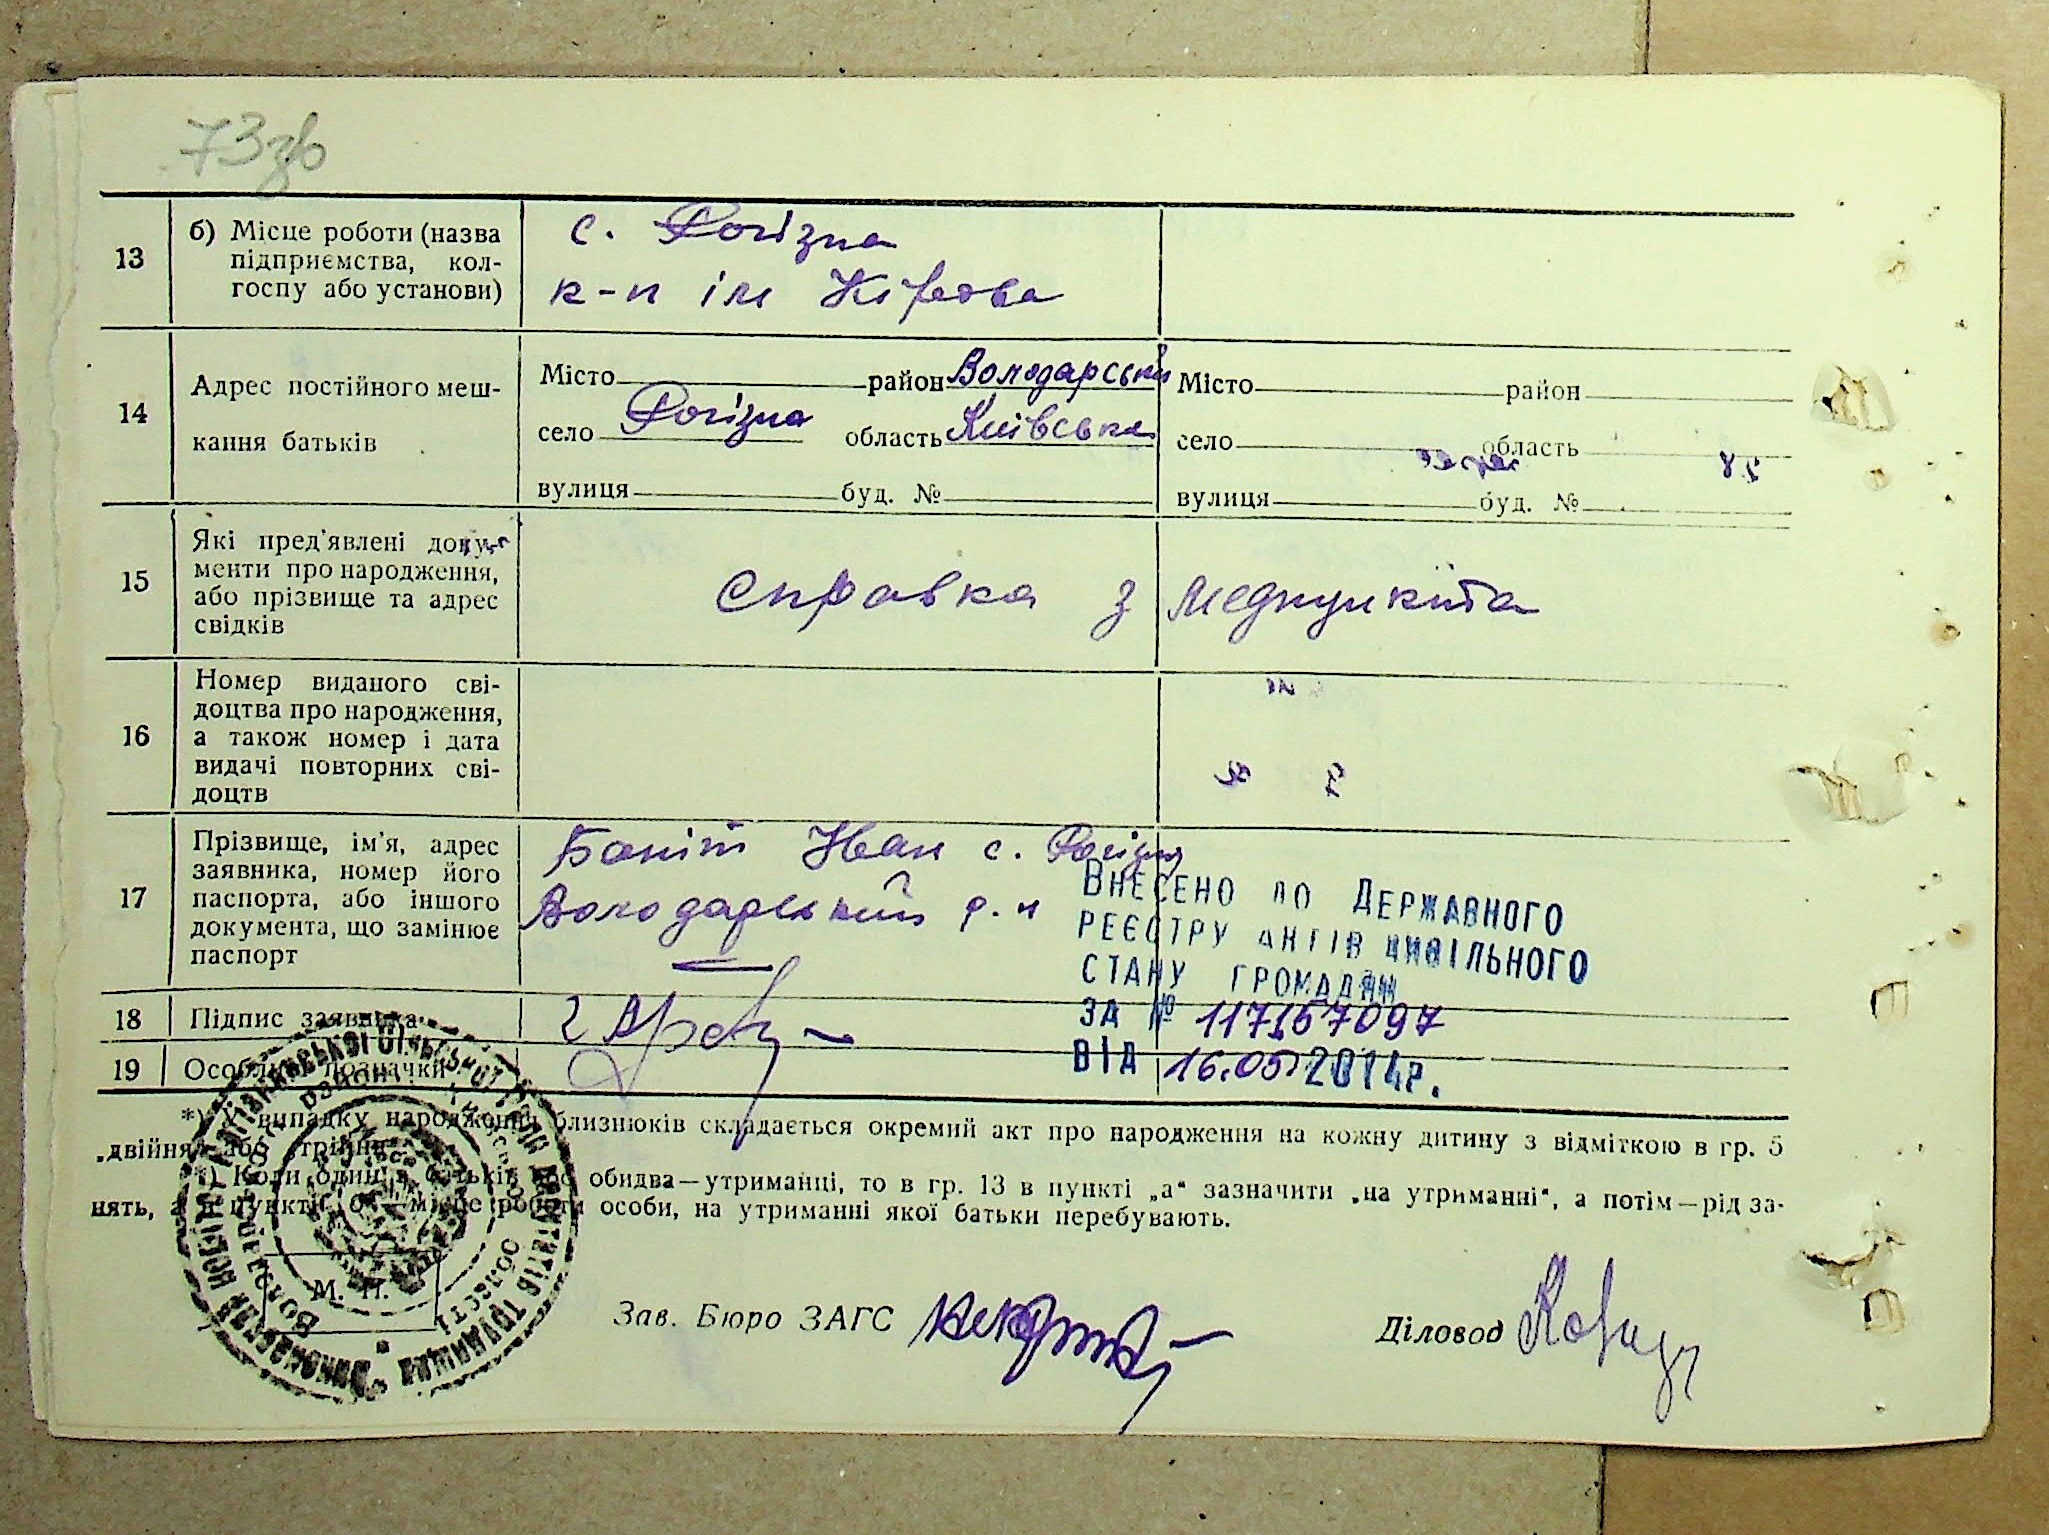 73зв
13
б) Місце роботи (назва
підприємства, кол-
госпу або установи)
с. Рогізна
к-п ім Кірова
14
Адрес постійного меш-
кання батьків
Місто район Володарський
село Рогізна область Київська
вулиця буд. №
Місто район
село область
вулиця буд. №
15
Які пред'явлені доку-
менти про народження,
або прізвище та адрес
свідків
Справка з медпункта
16
Номер виданого сві-
доцтва про народження,
а також номер і дата
видачі повторних сві-
доцтв
17
Прізвище, ім'я, адрес
заявника, номер його
паспорта, або іншого
документа, що замінює
паспорт
Бапіт Іван с. Рогізна
Володарський р-н
Внесено до Державного
реєстру актів цивільного
стану громадян
за № 117157097
від 16.05 2014р.
18
Підпис заявника
19
Особливі позначки
*) У випадку народження близнюків складається окремий акт про народження на кожну дитину з відміткою в гр. 5
„двійня“ або „трійня“.
*) Коли один з батьків або обидва—утриманці, то в гр. 13 в пункті „а“ зазначити „на утриманні“, а потім—рід за-
нять, а в пункті „б“—місце роботи особи, на утриманні якої батьки перебувають.
М. П.
Зав. Бюро ЗАГС
Діловод